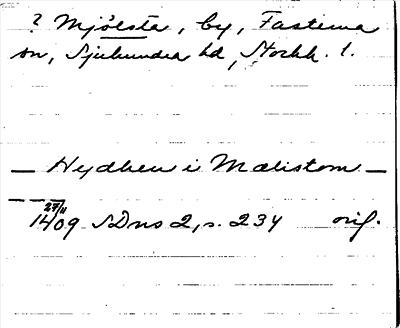 ? Mjölsta, by, Fasterna
sn, Sjuhundra hd, Stockh. l.
— Hydhen i Mælistom —
27/11
1409 SDns 2, s. 234 orig.